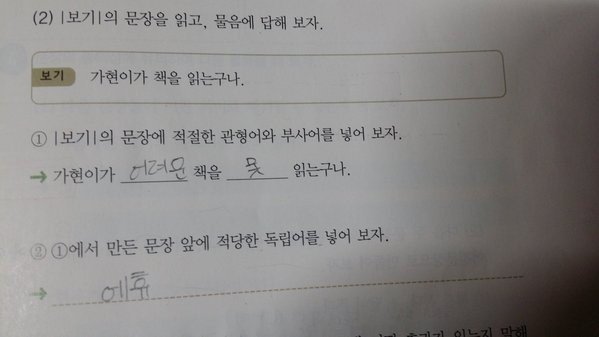 (2) |보기|의 문장을 읽고, 물음에 답해 보자.
보기 가현이가 책을 읽는구나.
① |보기|의 문장에 적절한 관형어와 부사어를 넣어 보자.
→ 가현이가 어려운 책을 못 읽는구나.
② ①에서 만든 문장 앞에 적당한 독립어를 넣어 보자.
→ 에휴
있는지 말해